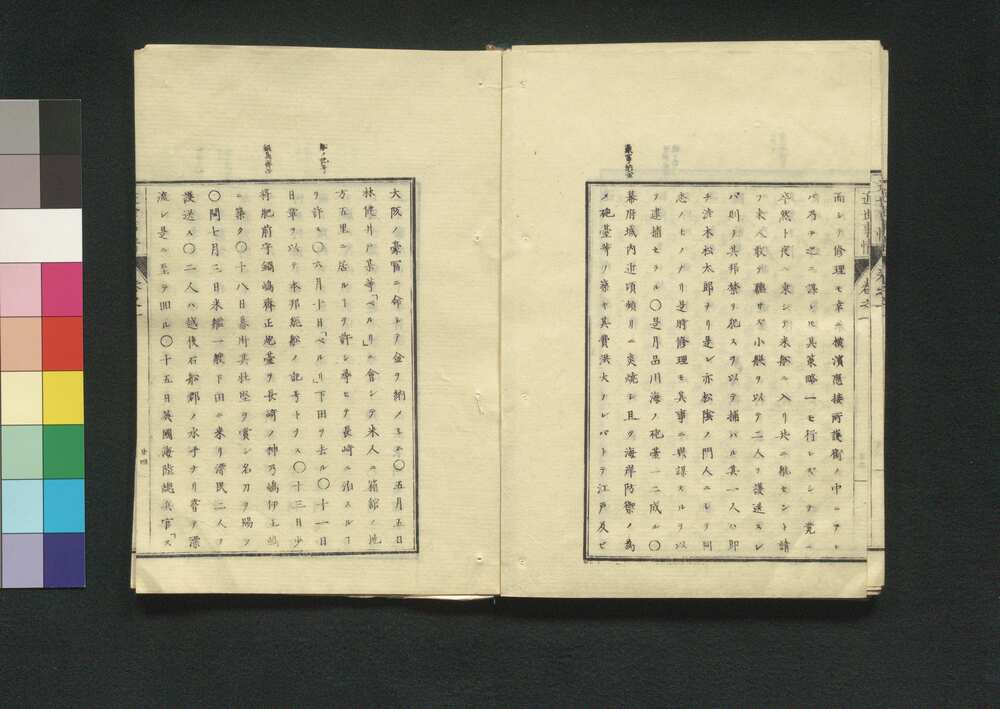 而シテ修理モ幸ニ横濱應接所護衛ノ中ニアレ
バ乃チ之ニ謀レル其策略一モ行レズシテ竟ニ
卒然ト夜ニ乗シテ米船ニ入リ共ニ航セント請
フ米人敢テ聽サズ小艇ヲ以テ二人ヲ護送スレ
バ則チ其邦禁ヲ犯スヲ以テ捕ハル其一人ハ即
チ渋木松太郎ナリ是レ亦松陰ノ門人ニシテ同
志ノヒトナリ是時修理モ其事ニ與謀スルヲ以
テ逮捕セラル〇是月品川海ノ砲臺一二成ル〇
幕府城内近頃頻リニ災燒シ且ツ海岸防禦ノ為
メ砲臺等ヲ築キ其費洪大ナレバトテ江戸及ビ
大阪ノ豪冨ニ命シテ金ヲ納ノシム〇五月五日
林健井戸某等「ペルリ」ニ會シテ米人ニ箱館ノ地
方五里ニ居ルヿヲ許シ尋ヒテ長崎ニ泊スルヿ
ヲ許ス〇六月十日「ペルリ」下田ヲ去ル〇十一日
日章ヲ以テ本邦総船ノ記号トナス〇十三日少
将肥前守鍋嶋齊正砲臺ヲ長崎ノ神乃嶋伊王嶋
ニ築ク〇十八日幕府其壮堅ヲ賞シ名刀ヲ賜フ
〇閏七月三日米艦一艘下田ニ来リ漂民二人ヲ
護送ス〇二人ハ越後石船郡ノ水手ナリ嘗テ漂
流シ是ニ至テ回ル〇十五日英國海陸總兵官「ス
廿四